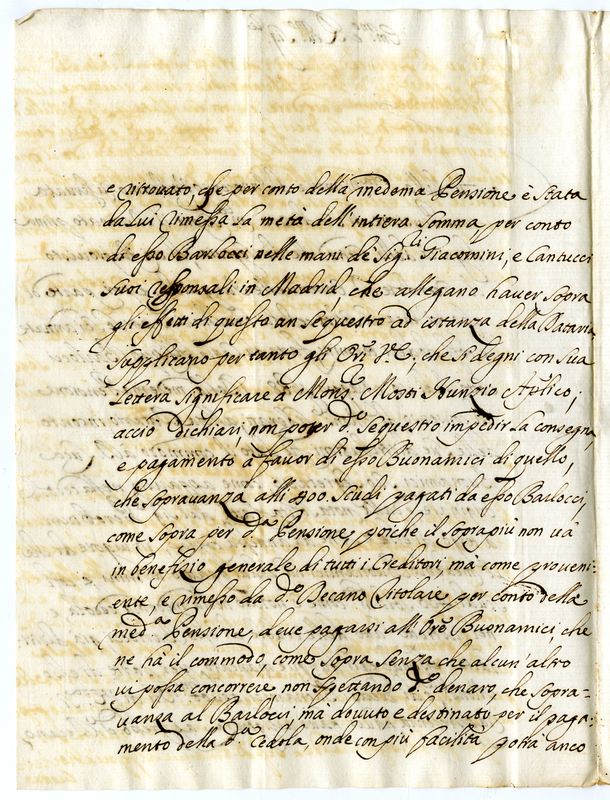 e ritrovato, che per conto della medema Pensione è stata
da lui rimessa la metà dell'intiera somma per conto
di esso Barlocci nelle mani de Sig.ri Giacomini, e Cantucci
suoi responsali in Madrid, che allegano haver sopra
gli effetti di questo un sequestro ad istanza della Dataria
supplicano per tanto gli Ori V.E., che si degni con sua
lettera significare a Mons.r Mosti Nunzio Aplico,
acciò dichiari, non poter d.o sequestro impedir la consegna,
e pagamento à favor di esso Buonamici di quello,
che sopravanza alli 400. scudi pagati da esso Barlocci,
come sopra per d.a Pensione, poiche il soprapiù non và
in benefizio generale di tutti i Creditori, mà come proveni-
ente, e rimesso da d.o Decano Titolare per conto della
med.a Pensione, deve pagarsi all'Ore Buonamici, che
ne hà il commodo, come sopra senza che alcun'altro
vi possa concorrere non spettando d.o denaro, che sopra-
vanza al Barlocci, mà dovuto, e destinato per il paga-
mento della d.a Cedola, onde con più facilità potrà anco